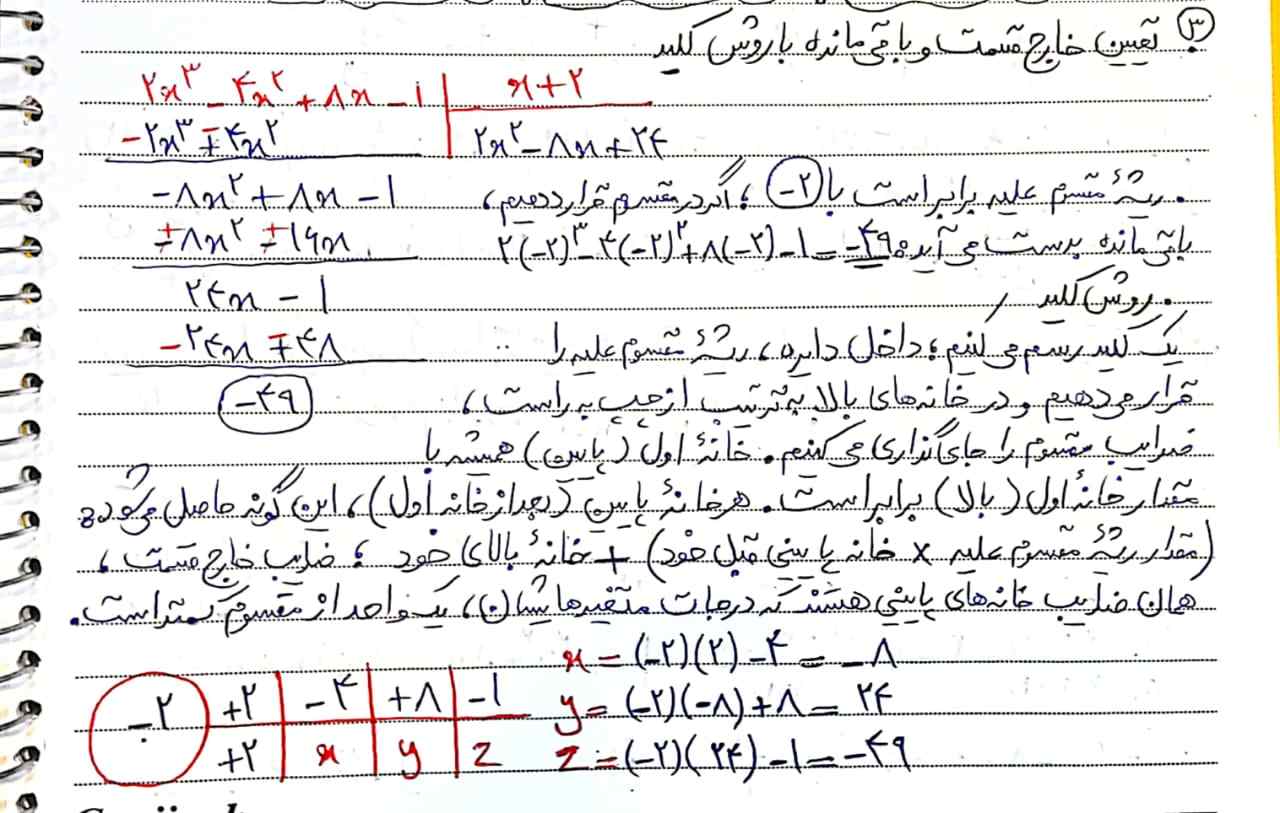 ۳) تعیین خارج قسمت و باقی مانده با روش کلید
۲x^۳ - ۴x^۲ + ۸x - ۱ | x + ۲
-۲x^۳ ∓ ۴x^۲ | ۲x^۲ - ۸x + ۲۴
-۸x^۲ + ۸x - ۱
± ۸x^۲ ± ۱۶x
۲۴x - ۱
-۲۴x ∓ ۴۸
-۴۹
• ریشهٔ مقسوم علیه برابر است با (-۲) ؛ اگر در مقسوم قرار دهیم،
باقی مانده بدست می آید: ۲(-۲)^۳ - ۴(-۲)^۲ + ۸(-۲) - ۱ = -۴۹
• روش کلید
یک کلید رسم می کنیم؛ داخل دایره، ریشهٔ مقسوم علیه را
قرار می دهیم و در خانه های بالا به ترتیب از چپ به راست،
ضرایب مقسوم را جای گذاری می کنیم. خانهٔ اول (پایین) همیشه با
مقدار خانهٔ اول (بالا) برابر است. هر خانهٔ پایین (بعد از خانه اول)، این گونه حاصل می شود:
(مقدار ریشهٔ مقسوم علیه × خانه پایینی قبل خود) + خانهٔ بالای خود ؛ ضرایب خارج قسمت،
همان ضرایب خانه های پایینی هستند که درجات متغیرهایشان، یک واحد از مقسوم کمتر است.
x = (-۲)(۲) - ۴ = -۸
-۲ | +۲ | -۴ | +۸ | -۱
y = (-۲)(-۸) + ۸ = ۲۴
+۲ | x | y | z
z = (-۲)(۲۴) - ۱ = -۴۹